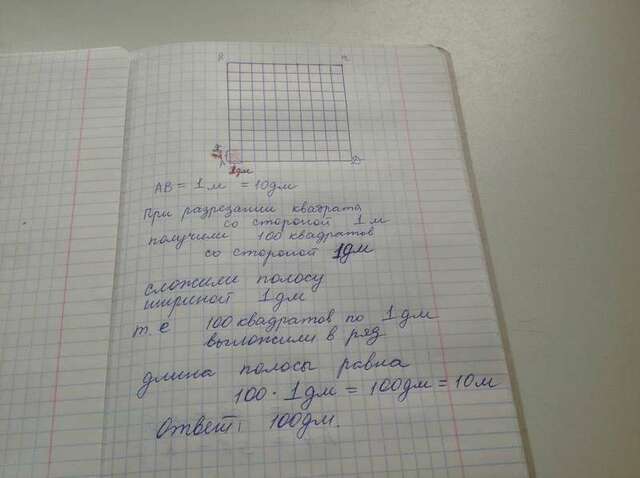 A
1дм
D
AB = 1 м = 10дм
При разрезании квадрата
со стороной 1 м
получили 100 квадратов
со стороной 1дм
сложили полосу
шириной 1дм
т. е 100 квадратов по 1 дм
выложили в ряд
длина полосы равна
100 · 1 дм = 100дм = 10м
Ответ: 100дм.